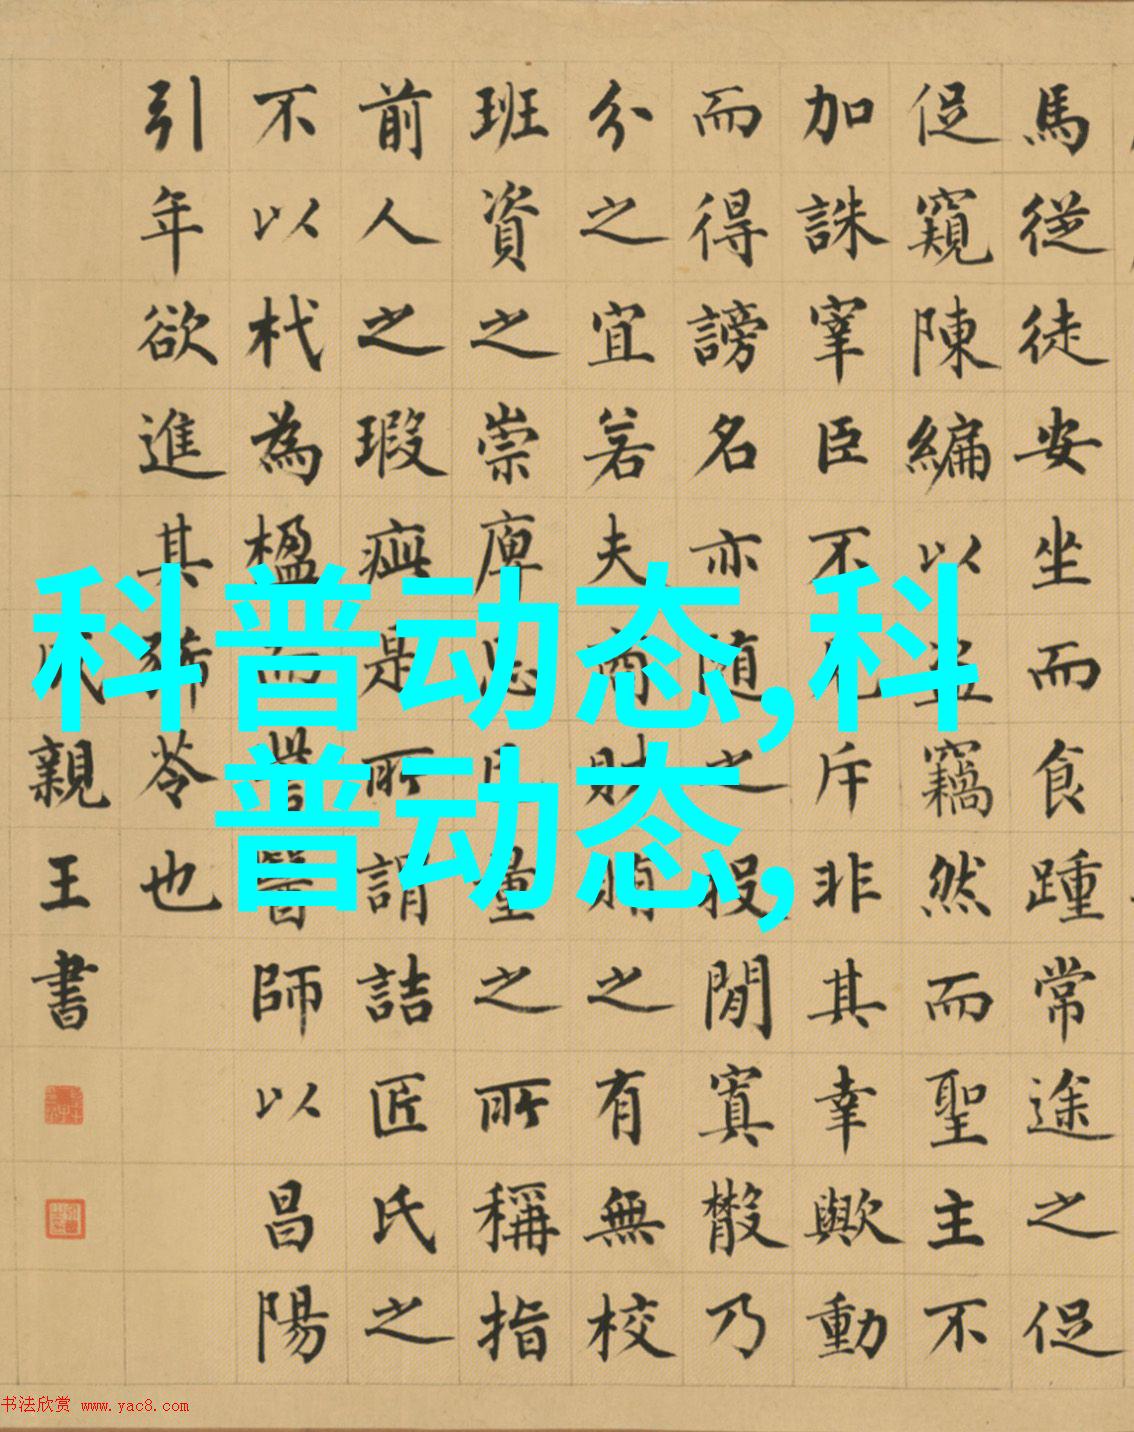 馬從徒安坐而食踵常途之促
促窺陳編以盗竊然而聖主不
加誅宰臣不見斥非其幸歟動
而得謗名亦随之投閒寘散乃
分之宜若夫商財賄之有無校
班資之崇庳忘己量之所稱指
前人之瑕疵是所謂詰匠氏之
不以杙為楹而訾醫師以昌陽
引年欲進其豨苓也
成親王書
科普动态,科
普动态,
书法欣赏 www.yac8.com